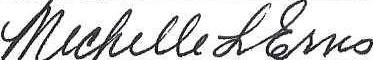 Michelle L Ernes